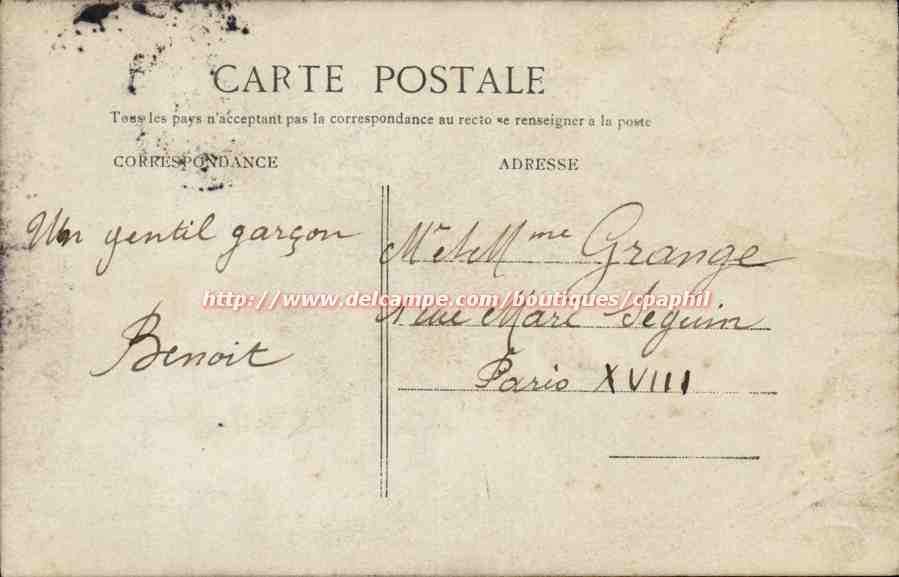 CARTE POSTALE
Tous les pays n'acceptant pas la correspondance au recto se renseigner à la poste
CORRESPONDANCE
ADRESSE
Un gentil garçon
Benoit
Mr et Mme Grange
http://www.delcampe.com/boutiques/cpaphil
rue Marc Seguin
Paris XVIII